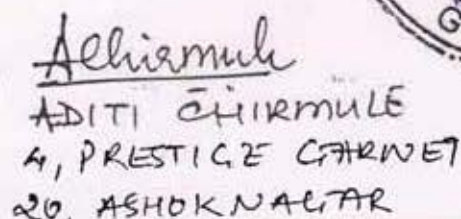 AChirmule
ADITI CHIRMULE
4, PRESTIGE GARNET
20, ASHOK NAGAR